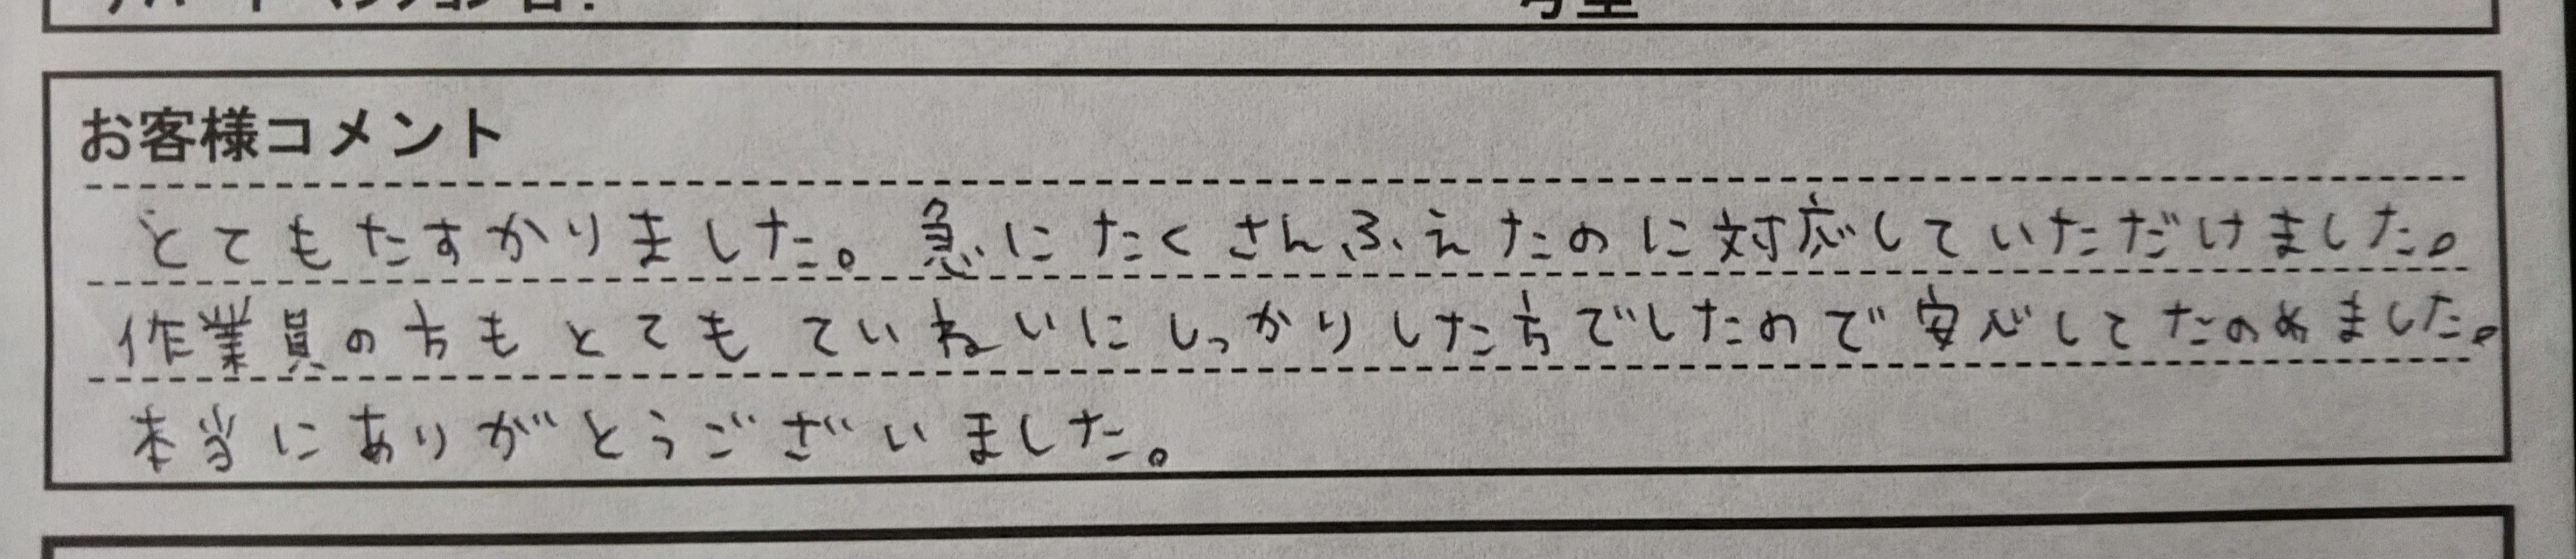 お客様コメント
とてもたすかりました。急にたくさんふえたのに対応していただけました。
作業員の方もとてもていねいにしっかりした方でしたので安心してたのめました。
本当にありがとうございました。